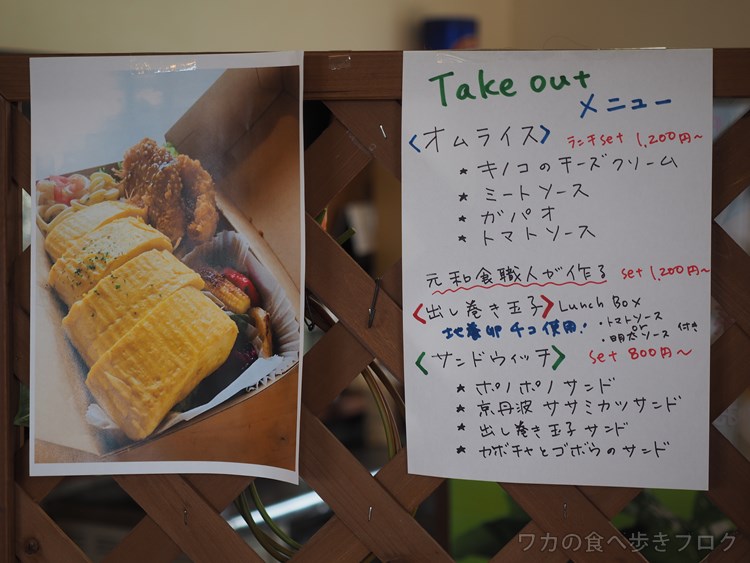 Take out
メニュー
<オムライス> ランチset 1,200円~
* キノコのチーズクリーム
* ミートソース
* ガパオ
* トマトソース
元和食職人が作る set 1,200円~
<出し巻き玉子> Lunch Box
地養卵 4コ使用! ・トマトソース
or
・明太ソース 付き
<サンドウィッチ> set 800円~
* ポノポノサンド
* 京丹波 ササミカツサンド
* 出し巻き玉子 サンド
* カボチャとゴボウのサンド
ワカの食べ歩きブログ